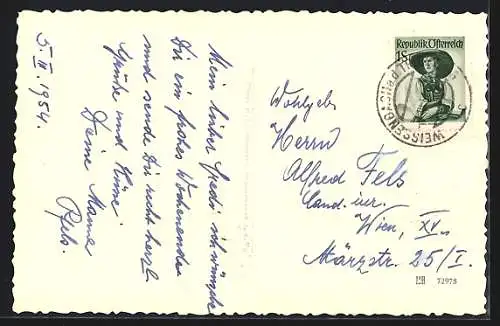 5. II. 1954.
Mein lieber Fredi ich wünsche
Dir ein frohes Wochenende
und sende Dir recht herzl.
Grüße und Küsse
Deine Mama
Republik Österreich
1 S
WEISSENBACH a. d.
Wohlgeb.
Herrn
Alfred Fels
Cand. iur.
Wien, XV.
Märzstr. 25/I.
72978